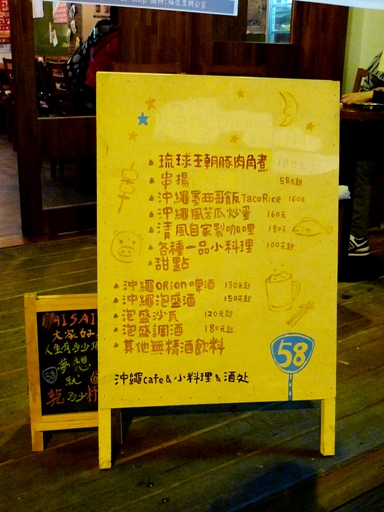 琉球王朝豚肉角煮 180元
串揚 58元起
沖繩墨西哥飯TacoRice 160元
沖繩風苦瓜炒蛋 160元
清風自家製咖哩 180元起
各種一品小料理 100元起
甜點
沖繩ORION啤酒 130元起
沖繩泡盛酒 150元起
泡盛沙瓦 120元起
泡盛調酒 180元起
其他無精酒飲料
58
沖繩Cafe&小料理&酒処
大家好
夢想
就